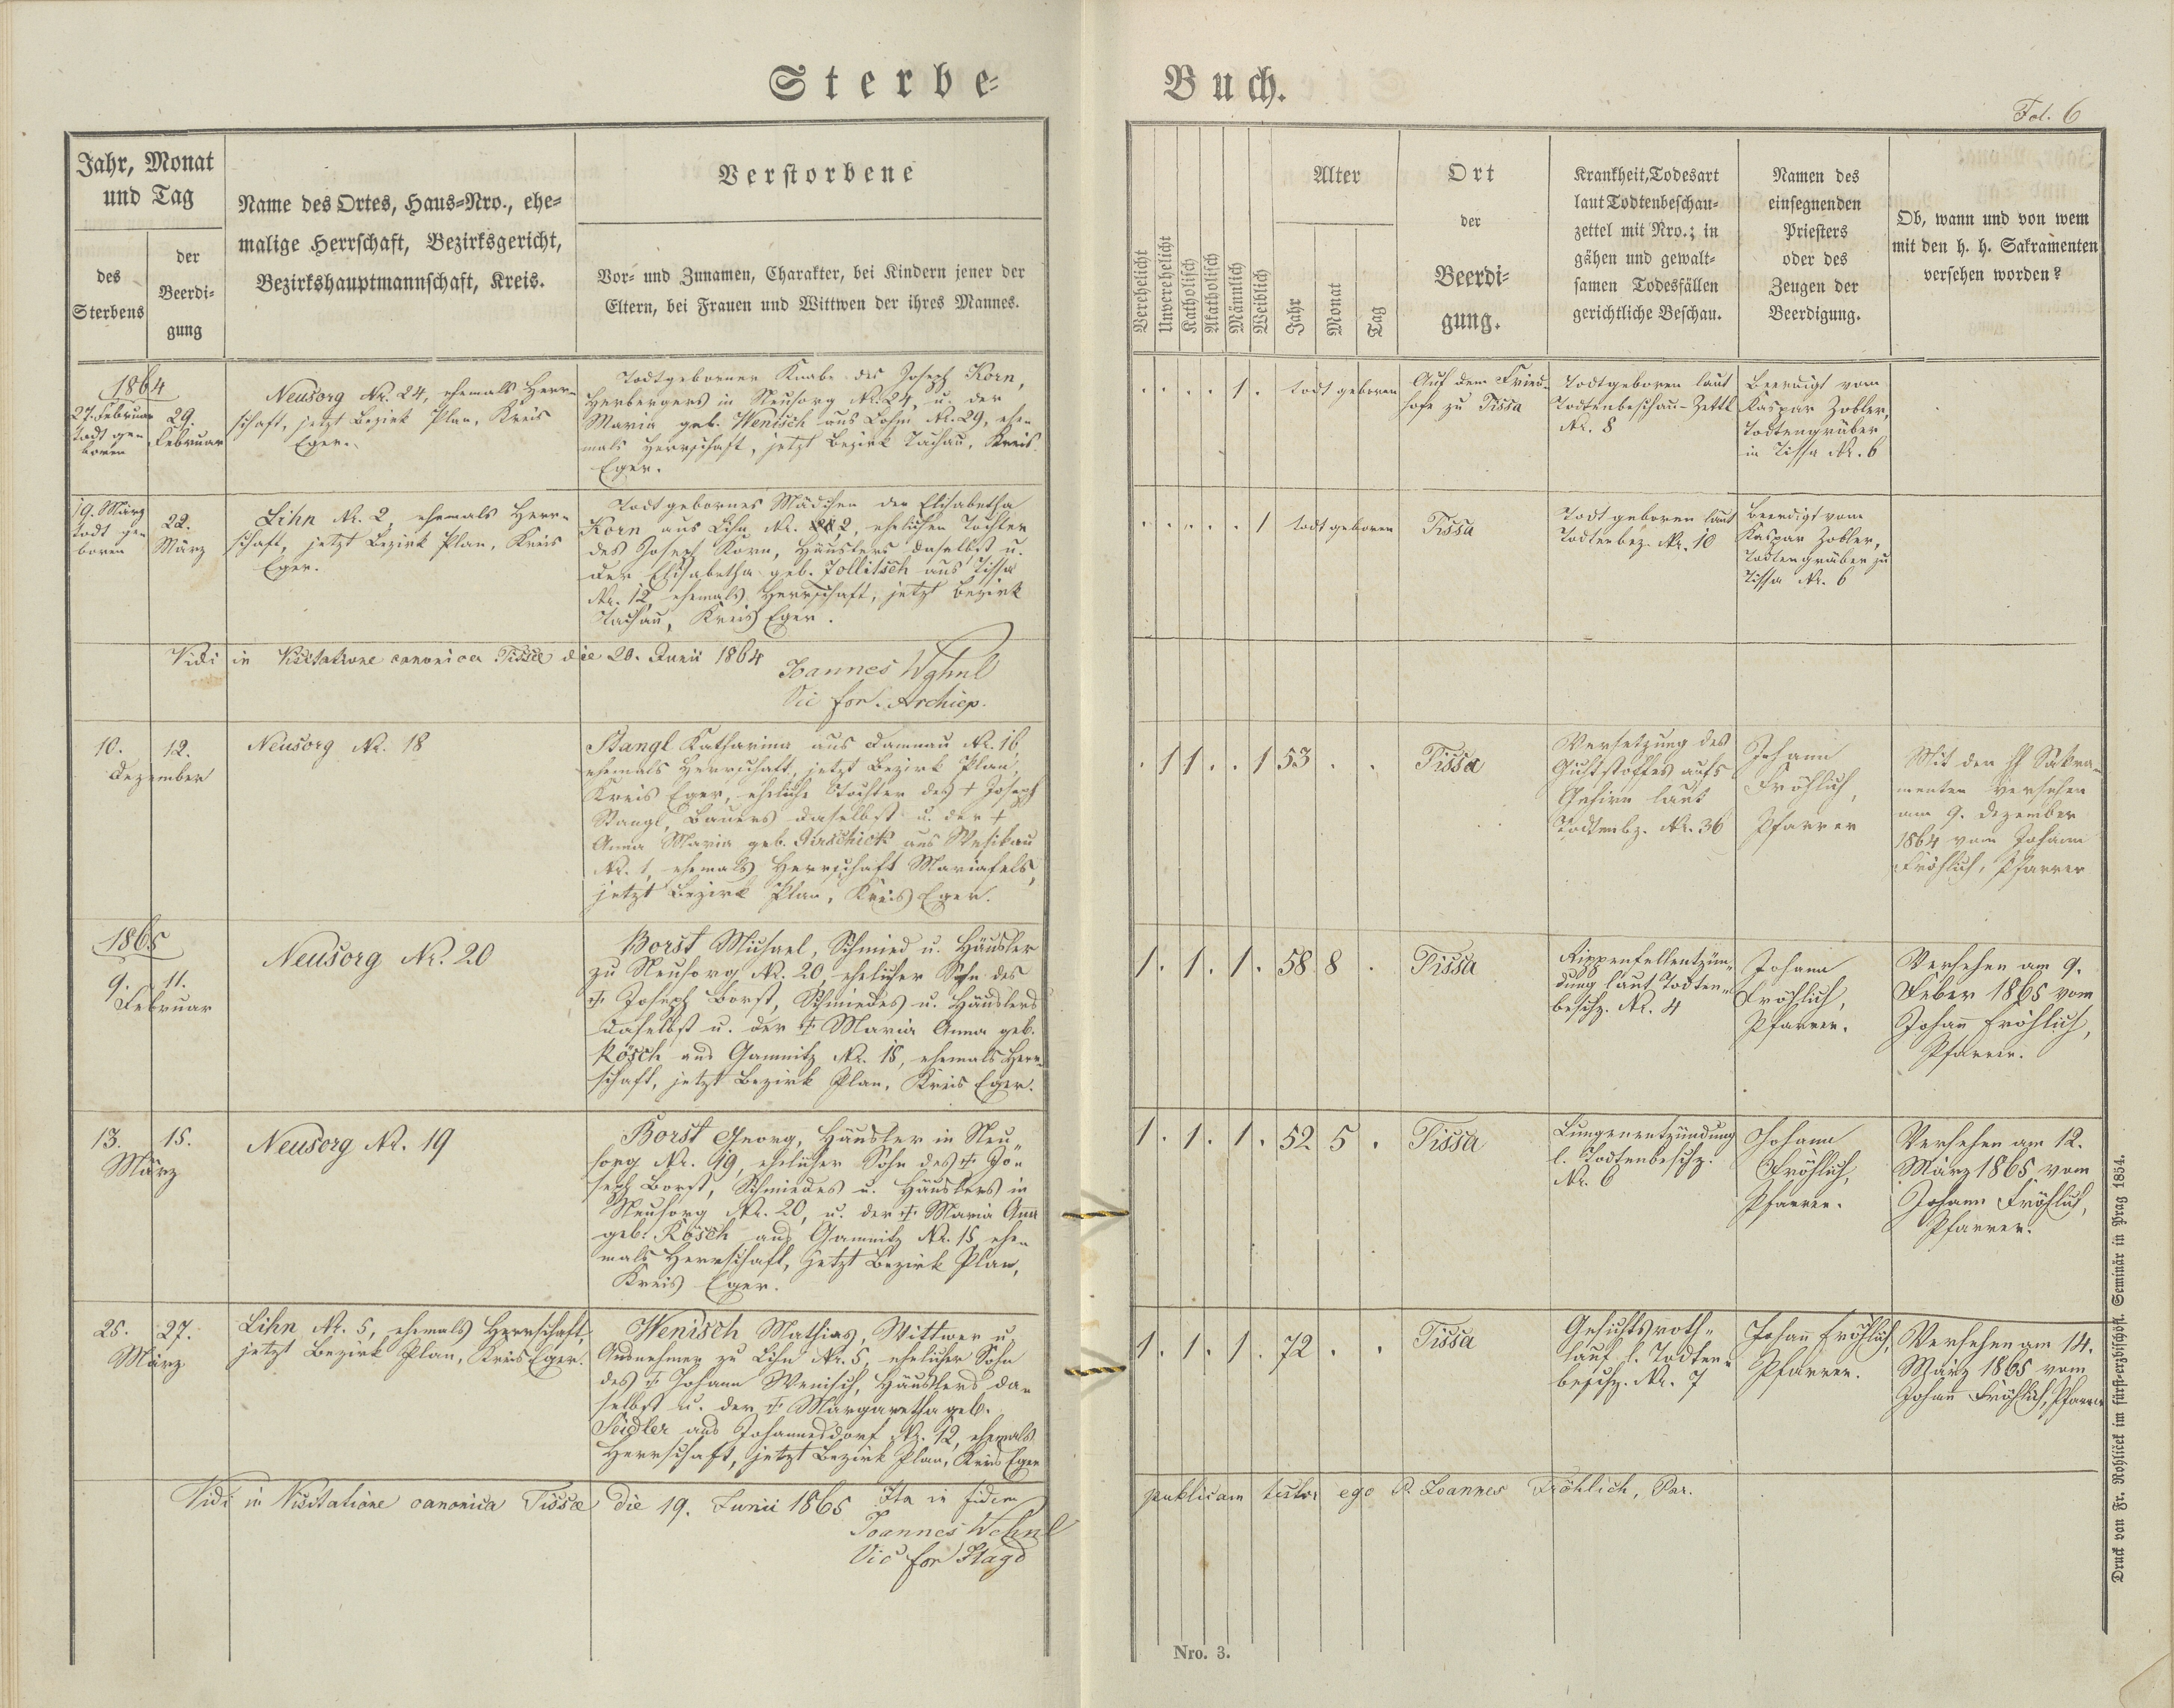 Sterbe-
Buch.
Fol. 6
Jahr, Monat
und Tag
des
Sterbens
der
Beerdi-
gung
Name des Ortes, Haus-Nro., ehe-
malige Herrschaft, Bezirksgericht,
Bezirkshauptmannschaft, Kreis.
Verstorbene
Vor- und Zunamen, Charakter, bei Kindern jener der
Eltern, bei Frauen und Wittwen der ihres Mannes.
Verehelicht
Unverehelicht
Katholisch
Akatholisch
Männlich
Weiblich
Alter
Jahr
Monat
Tag
Ort
der
Beerdi-
gung.
Krankheit, Todesart
laut Todtenbeschau-
zettel mit Nro.; in
gähen und gewalt-
samen Todesfällen
gerichtliche Beschau.
Namen des
einsegnenden
Priesters
oder des
Zeugen der
Beerdigung.
Ob, wann und von wem
mit den h. h. Sakramenten
versehen worden?
1864
27. Februar
todt ge-
boren
29.
Februar
Neusorg Nr. 24, ehemals Herr-
schaft, jetzt Bezirk Plan, Kreis
Eger.
Todtgeborner Knabe des Joseph Korn,
Herbergers in Neusorg Nr. 24, u. der
Maria geb. Wenisch aus Lohm Nr. 29, ehe-
mals Herrschaft, jetzt Bezirk Tachau, Kreis
Eger.
. . . . 1 . todt geboren
Auf dem Fried-
hofe zu Tissa
Todtgeboren laut
Todtenbeschau-Zettl
Nr. 8
Beerdigt vom
Kaspar Zobler,
Todtengräber
in Tissa Nr. 6
19. März
todt ge-
boren
22.
März
Lihn Nr. 2, ehemals Herr-
schaft, jetzt Bezirk Plan, Kreis
Eger.
Todtgebornes Mädchen der Elisabetha
Korn aus Lihn Nr. 2, ehelichen Tochter
des Joseph Korn, Häuslers daselbst u.
der Elisabetha geb. Zollitsch aus Tissa
Nr. 12, ehemals Herrschaft, jetzt Bezirk
Tachau, Kreis Eger.
. . . . . 1 todt geboren
Tissa
Todt geboren laut
Todtenbez. Nr. 10
beerdigt vom
Kaspar Zobler,
Todtengräber zu
Tissa Nr. 6
Vidi in Visitatione canonica Tissae die 20. Junii 1864
Joannes
Vic for. Archiep.
10. 12.
Dezember
Neusorg Nr. 18
Stangl Katharina aus Damnau Nr. 16,
ehemals Herrschaft, jetzt Bezirk Plan,
Kreis Eger, eheliche Tochter des + Joseph
Stangl, Bauers daselbst u. der +
Anna Maria geb. aus
Nr. 1, ehemals Herrschaft Mariafels,
jetzt Bezirk Plan, Kreis Eger.
. 1 1 . . 1 53 . .
Tissa
Versetzung des
Gichtstoffes aufs
Gehirn laut
Todtenbz. Nr. 36
Johann
Fröhlich,
Pfarrer
Mit den hh Sakra-
menten versehen
am 9. Dezember
1864 vom Johann
Fröhlich, Pfarrer
1865
9. 11.
Februar
Neusorg Nr. 20
Borst Michael, Schmied u. Häusler
zu Neusorg Nr. 20, ehelicher Sohn des
+ Joseph Borst, Schmiedes u. Häuslers
daselbst u. der + Maria Anna geb.
Rösch aus Gamnitz Nr. 15, ehemals Herr-
schaft, jetzt Bezirk Plan, Kreis Eger.
1 . 1 . 1 . 58 8 .
Tissa
Rippenfellentzün-
dung laut Todten-
beschz. Nr. 4
Johann
Fröhlich,
Pfarrer.
Versehen am 9.
Feber 1865 vom
Johann Fröhlich,
Pfarrer.
13. 15.
März
Neusorg Nr. 19
Borst Georg, Häusler in Neu-
sorg Nr. 19, ehelicher Sohn des + Jo-
seph Borst, Schmiedes u. Häuslers in
Neusorg Nr. 20, u. der + Maria Anna
geb. Rösch aus Gamnitz Nr. 15, ehe-
mals Herrschaft, jetzt Bezirk Plan,
Kreis Eger.
1 . 1 . 1 . 52 5 .
Tissa
Lungenentzündung
l. Todtenbeschz.
Nr. 6
Johann
Fröhlich,
Pfarrer.
Versehen am 12.
März 1865 vom
Johann Fröhlich,
Pfarrer.
25. 27.
März
Lihn Nr. 5, ehemals Herrschaft,
jetzt Bezirk Plan, Kreis Eger.
Wenisch Mathias, Wittwer u.
Ausnehmer zu Lihn Nr. 5, ehelicher Sohn
des + Johann Wenisch, Häuslers da-
selbst u. der + Margaretha geb.
Seidler aus Johannesdorf Nr. 12, ehemals
Herrschaft, jetzt Bezirk Plan, Kreis Eger
1 . 1 . 1 . 72 . .
Tissa
Gesichtsroth-
lauf l. Todten-
beschz. Nr. 7
Johann Fröhlich,
Pfarrer.
Versehen am 14.
März 1865 vom
Johann Fröhlich, Pfarrer
Vidi in Visitatione canonica Tissae die 19. Junii 1865
Joannes
Vic for
Ita in fidem publicam testor ego P. Joannes Fröhlich, Par.
Nro. 3.
Druck von Fr. Rohliček im fürst-erzbischöfl. Seminär in Prag 1854.